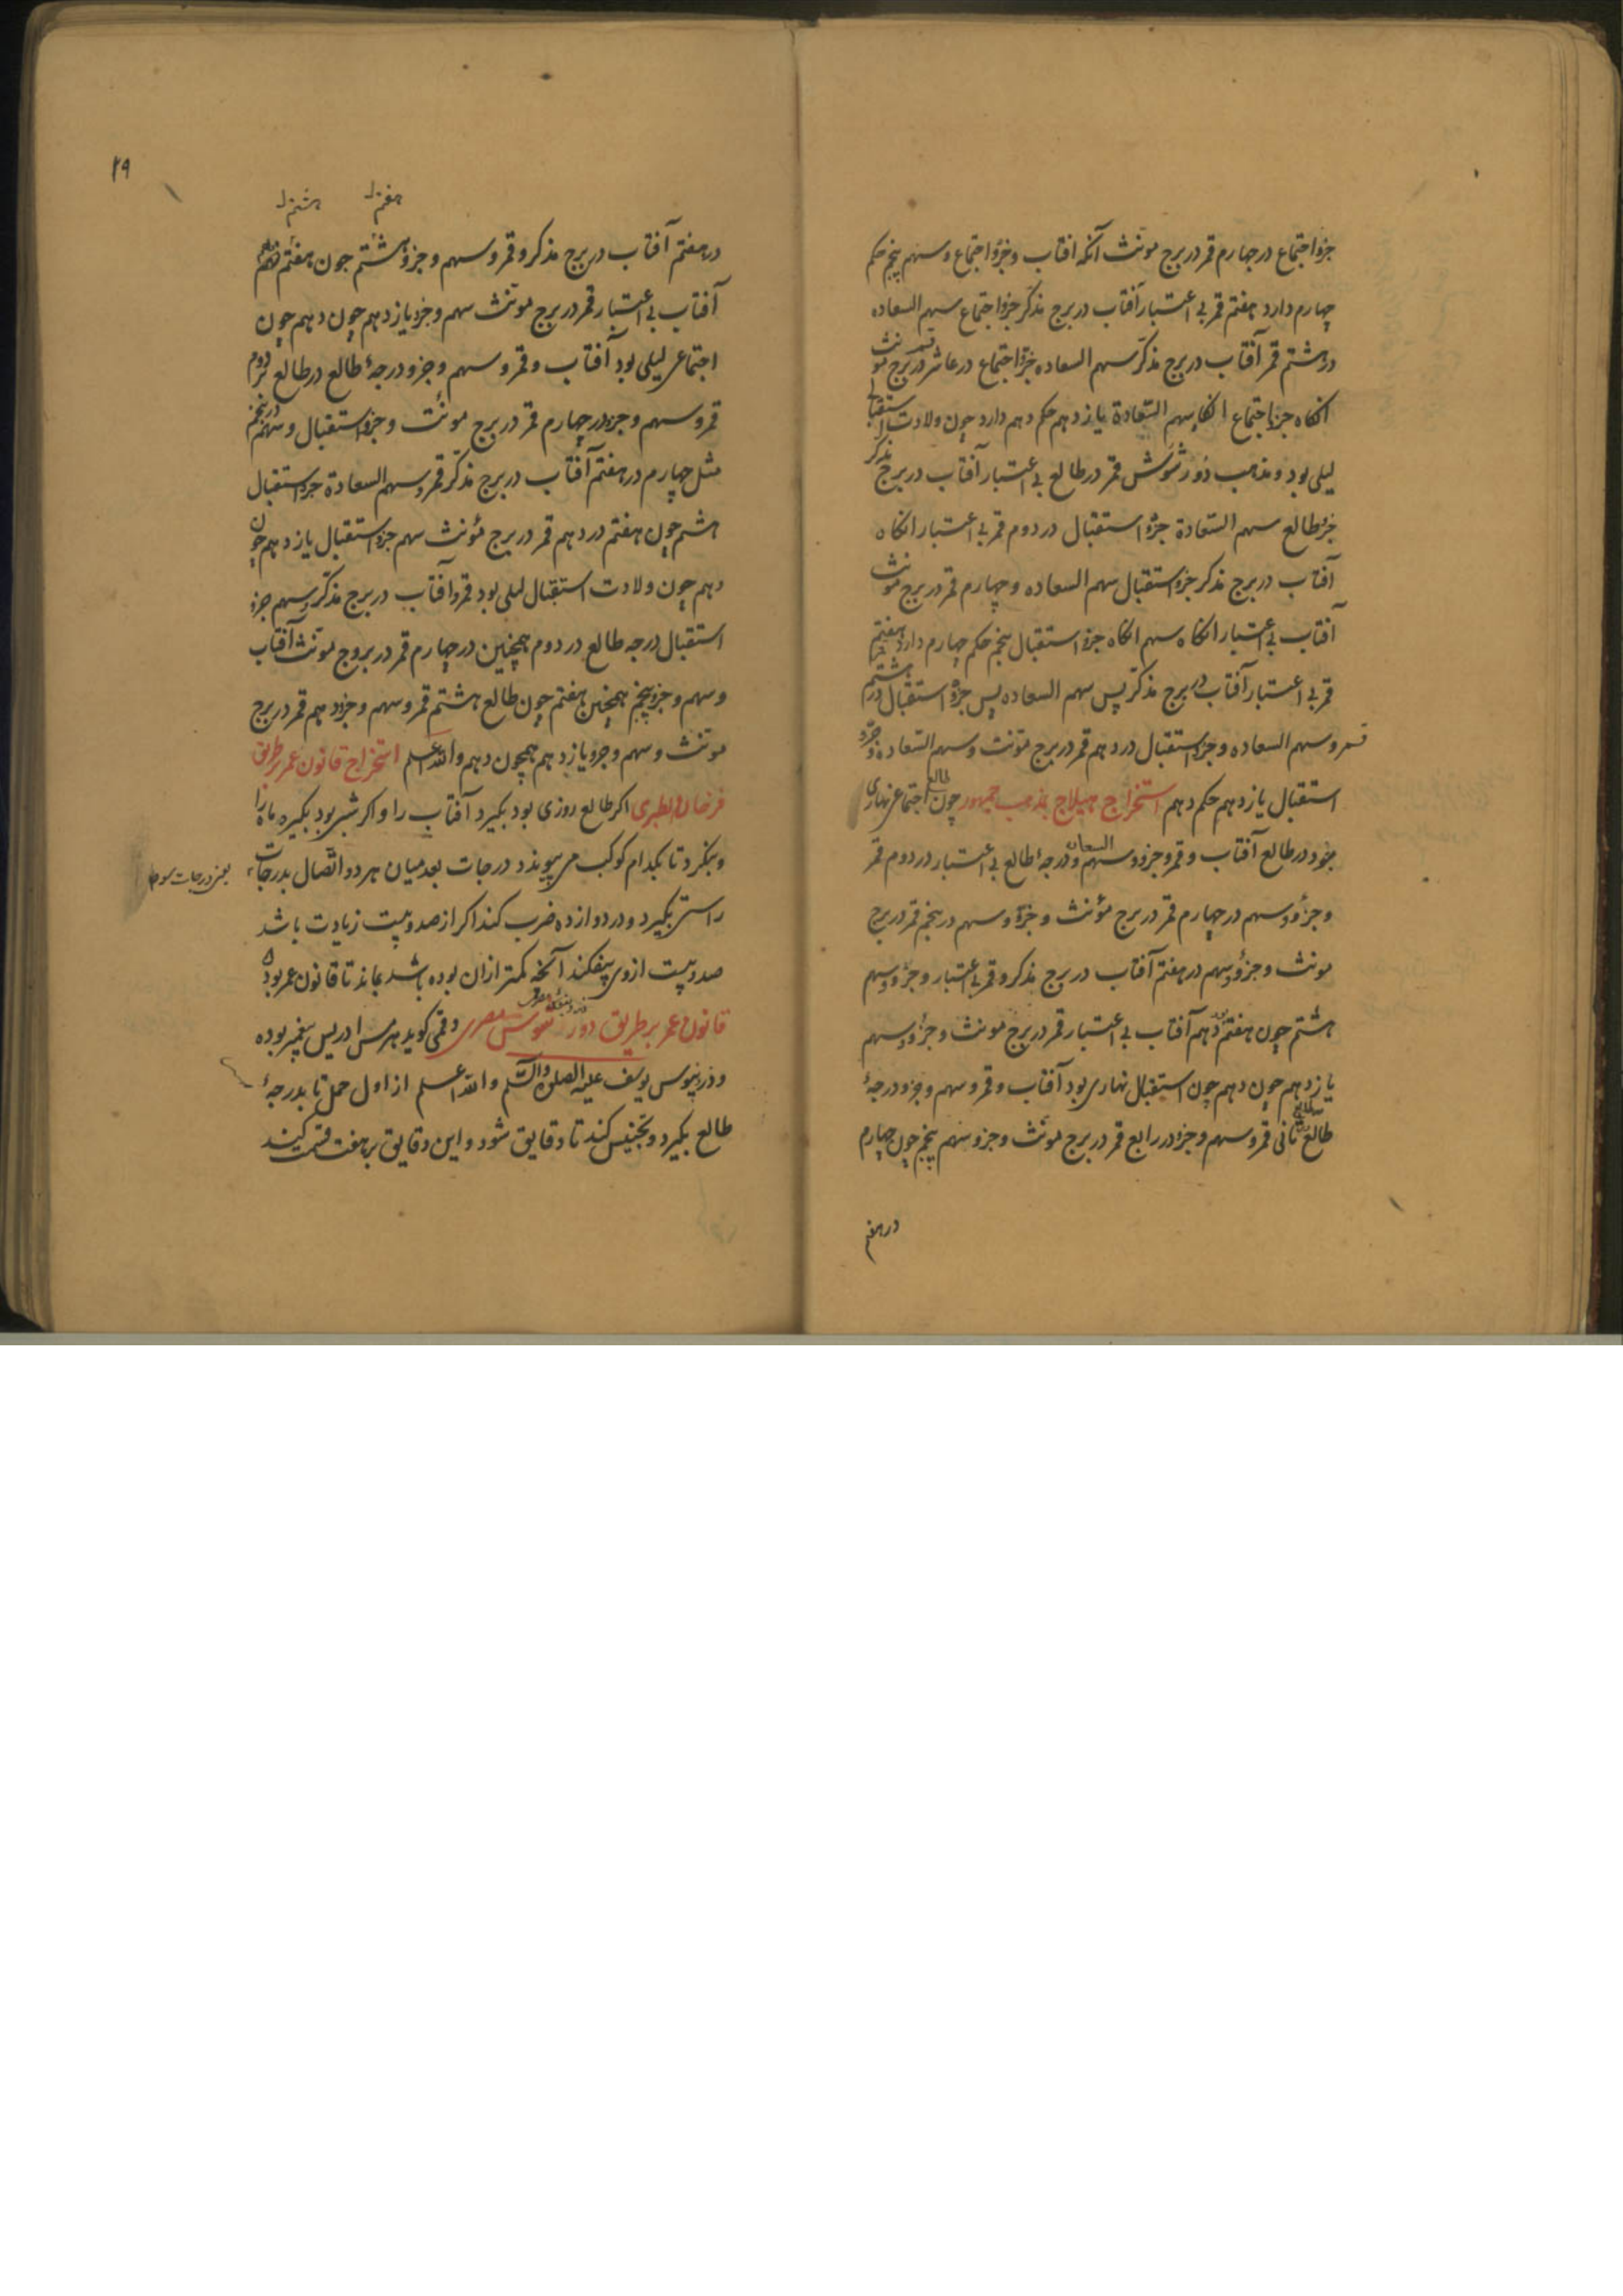 جزؤ اجتماع در چهارم قمر در برج مونث آنکه افتاب و جزؤ اجتماع و سهم پنجم حکم
چهارم دارد هفتم قمر بی اعتبار آفتاب در برج مذکر جزؤ اجتماع سهم السعاده
در هشتم قمر آفتاب در برج مذکر سهم السعاده جزؤ اجتماع در عاشر قمر در برج مونث
انکاه جزؤ اجتماع انکاه سهم السعادة یازدهم حکم دهم دارد چون ولادت استقبال
لیلی بود و مذهب قمر در طالع بی اعتبار آفتاب در برج مذکر
جزؤ طالع سهم السعادة جزؤ استقبال در دوم قمر بی اعتبار انکاه
آفتاب در برج مذکر جزؤ استقبال سهم السعاده و چهارم قمر در برج مونث
آفتاب بی اعتبار انکاه سهم انکاه جزؤ استقبال پنجم حکم چهارم دارد هفتم
قمر بی اعتبار آفتاب در برج مذکر پس سهم السعاده پس جزؤ استقبال در هشتم
قمر و سهم السعاده و جزؤ استقبال در دهم قمر در برج مؤنث و سهم السعاده و جزؤ
استقبال یازدهم حکم دهم استخراج هیلاج بمذهب جمهور چون طالع اجتماعی نهاری
بود در طالع آفتاب و قمر و جزؤ و سهم السعاده و درجهٔ طالع بی اعتبار در دوم قمر
و جزؤ و سهم در چهارم قمر در برج مؤنث و جزؤ و سهم در پنجم قمر در برج
مونث و جزؤ و سهم در هفتم آفتاب در برج مذکر و قمر بی اعتبار و جزؤ و سهم
هشتم چون هفتم در دهم آفتاب بی اعتبار قمر در برج مونث و جزؤ و سهم
یازدهم چون دهم چون استقبال نهاری بود آفتاب و قمر و سهم و جزؤ و درجهٔ
طالع در طالع ثانی قمر و سهم و جزؤ در رابع قمر در برج مونث و جزؤ و سهم پنجم چون چهارم
در هفتم
۲۹
هفتم هشتم
در هفتم آفتاب در برج مذکر و قمر و سهم و جزؤ هشتم چون هفتم دهم
آفتاب بی اعتبار قمر در برج مونث سهم و جزؤ یازدهم چون دهم چون
اجتماعی لیلی بود آفتاب و قمر و سهم و جزؤ و درجهٔ طالع در طالع در دوم
قمر و سهم و جزؤ در چهارم قمر در برج مونث و جزؤ استقبال و سهم در پنجم
مثل چهارم در هفتم آفتاب در برج مذکر قمر و سهم السعادة جزؤ استقبال
هشتم چون هفتم در دهم قمر در برج مؤنث سهم جزؤ استقبال یازدهم چون
دهم چون ولادت استقبال لیلی بود قمر و آفتاب در برج مذکر و سهم جزؤ
استقبال درجه طالع در دوم همچنین در چهارم قمر در بروج مونث آفتاب
و سهم و جزؤ پنجم همچنین هفتم چون طالع هشتم قمر و سهم و جزؤ دهم قمر در برج
مونث و سهم و جزؤ یازدهم همچون دهم والله اعلم استخراج قانون عمر بطریق
فرخان طبری اکر طالع روزی بود بکیرد آفتاب را و اکر شبی بود بکیرد ماه را
و بنکرد تا بکدام کوکب می پیوندد درجات بعد میان هر دو اتصال بدرجات
یعنی درجات سوا
راستی بکیرد و در دوازده ضرب کند اکر از صد و بیست زیادت باشد
صد و بیست از وی بیفکند آنچه کمتر از ان بوده باشد بماند تا قانون عمر بود
قانون عمر بر طریق دور مصری و قمی کوید هرمس ادریس پیغمبر بوده
و ذرینوس یوسف علیه الصلوة والسلم والله اعلم از اول حمل تا بدرجهٔ
طالع بکیرد و تجنیس کند تا دقایق شود و این دقایق بر هفت قسمت کند